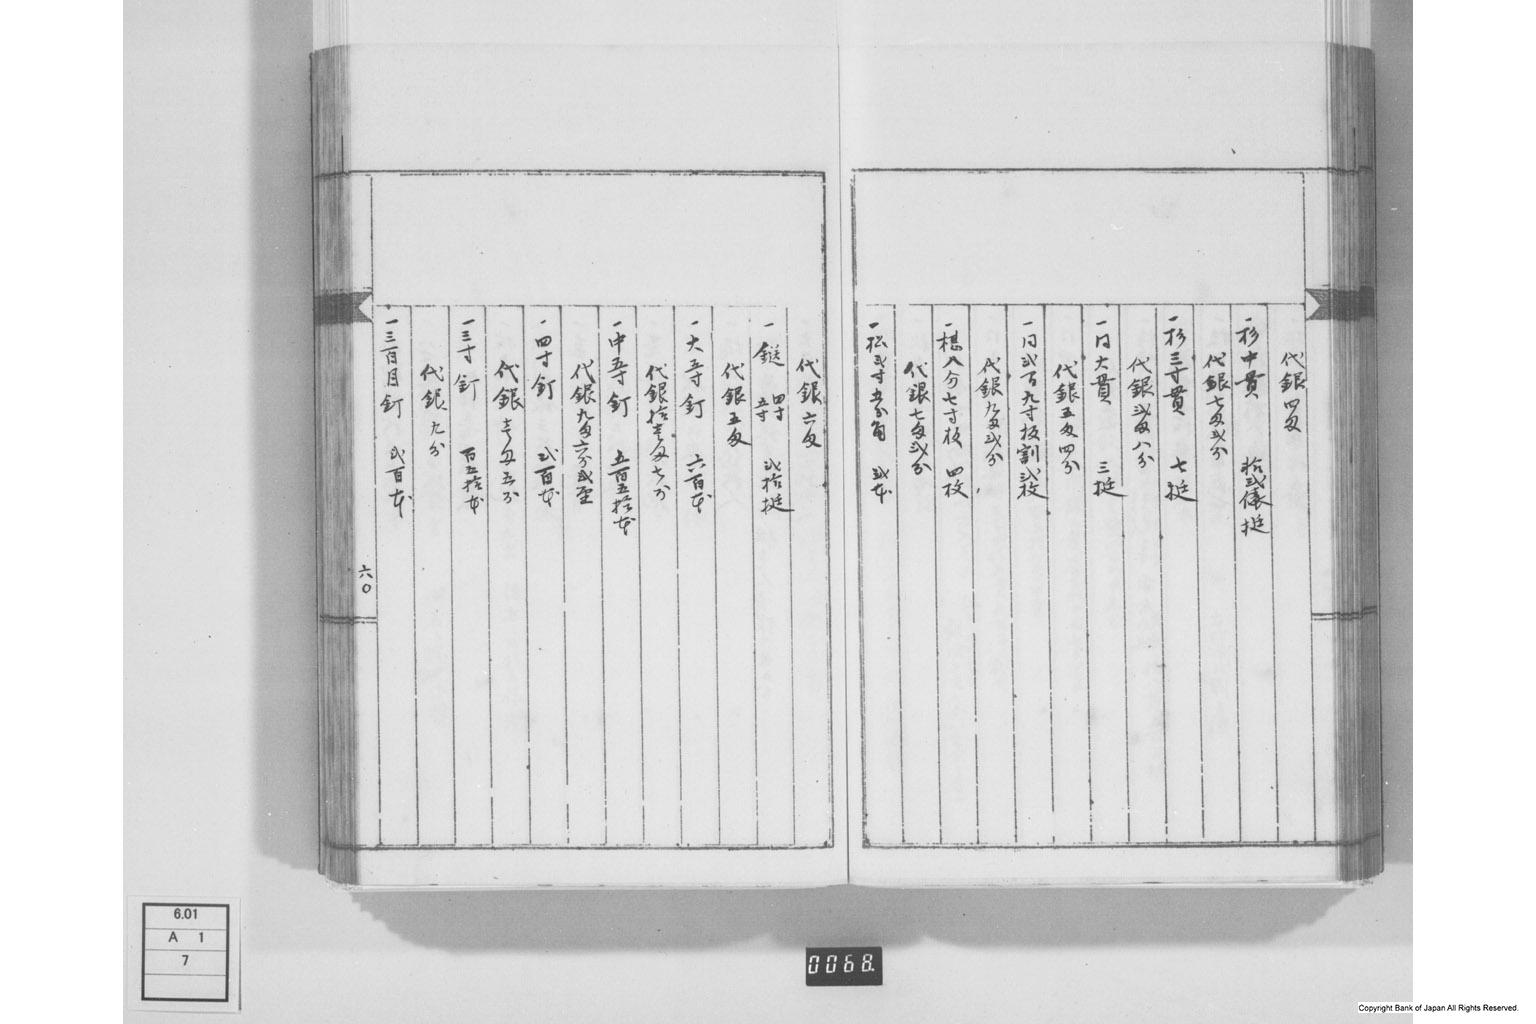 代銀四匁
一杉中貫　拾弐挺
代銀七匁弐分
一杉三寸貫　七挺
代銀弐匁八分
一同大貫　三挺
代銀五匁四分
一同弐百九寸板割弐枚
代銀九匁弐分
一椹八分七寸板　四枚
代銀七匁弐分
一松弐寸五分角　弐本
代銀六匁
一鎹　四寸五寸　弐拾挺
代銀五匁
一大五寸釘　六百本
代銀拾壱匁七分
一中五寸釘　五百五拾本
代銀九匁六分弐厘
一四寸釘　弐百本
代銀壱匁五分
一三寸釘　百五拾本
代銀九分
一三百目釘　弐百本
六〇
6.01
A 1
7
0068.
Copyright Bank of Japan All Rights Reserved.